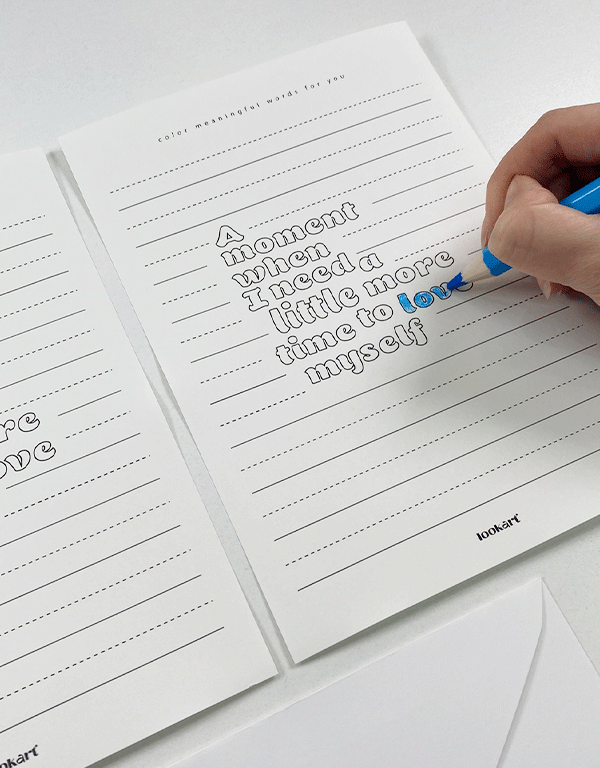 color meaningful words for you
A
moment
when
I need a
little more
time to love
myself
lookart
re
ove
lookart